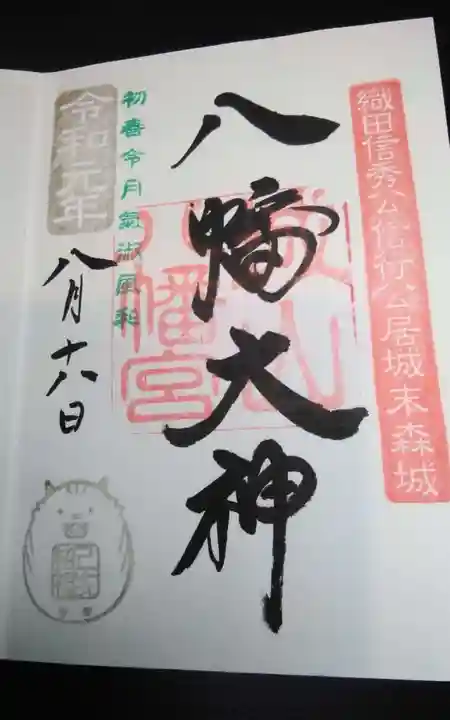 織田信秀公信行公居城末森城
八幡大神
城山
八幡宮
初春令月氣淑風和
令和元年
八月十六日